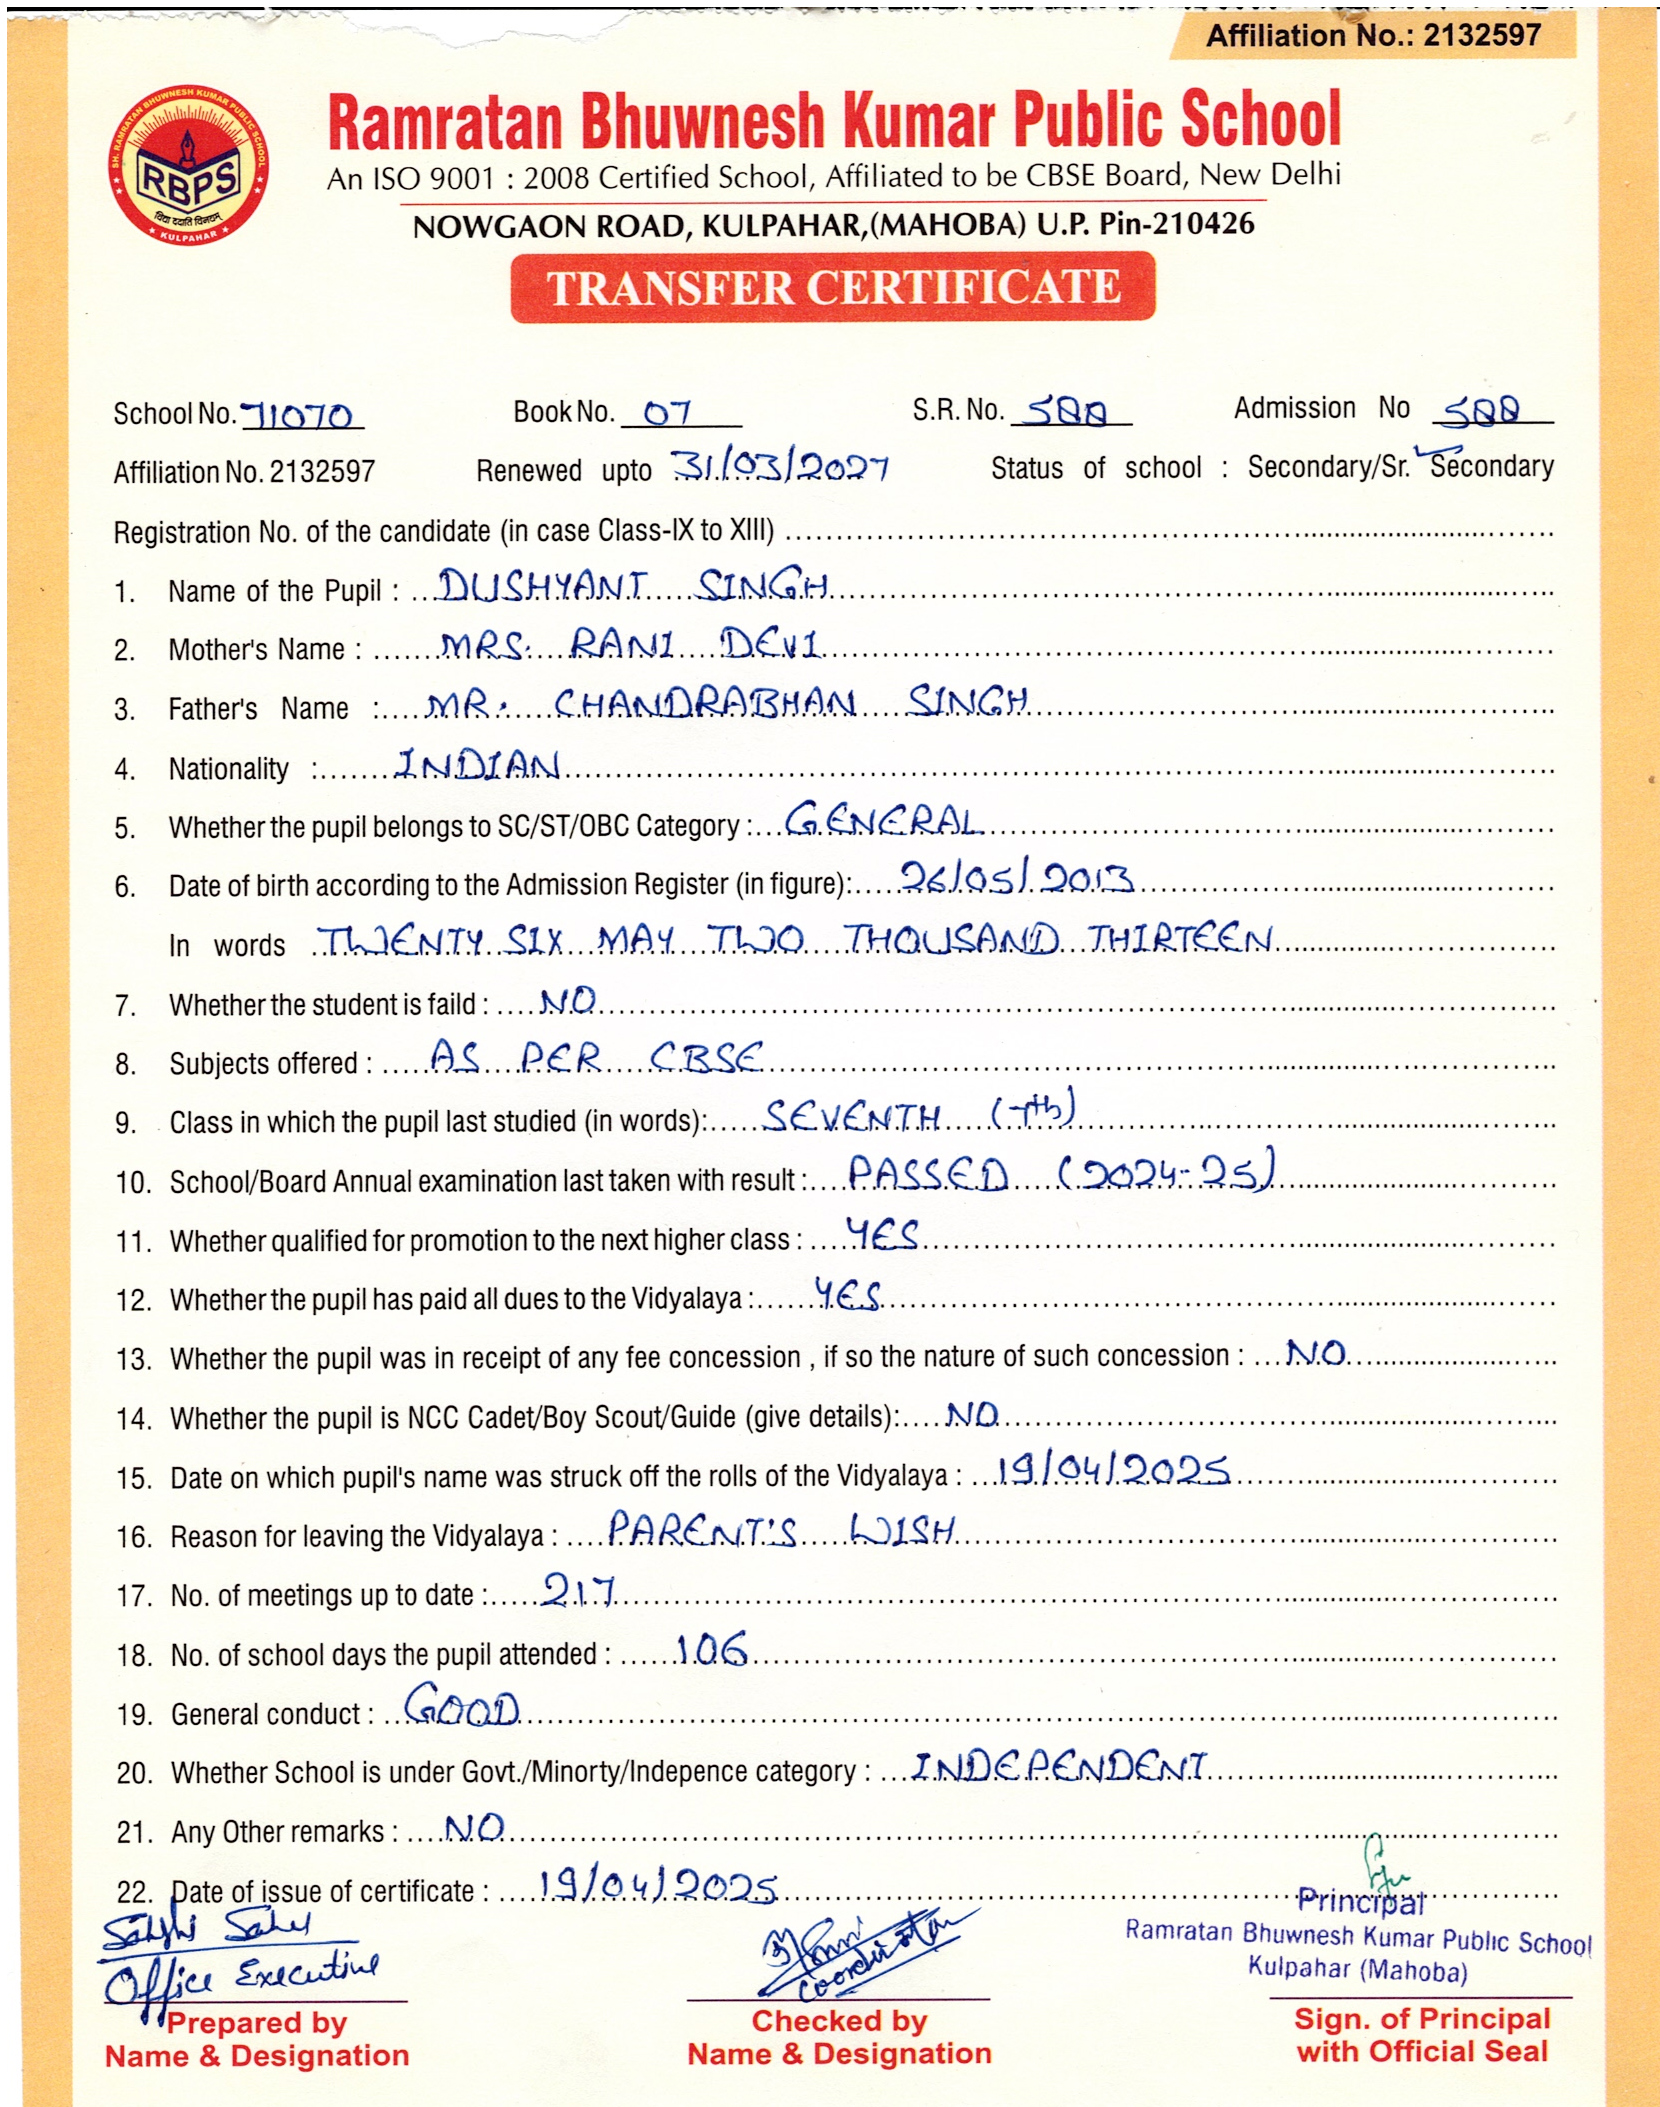 Affiliation No.: 2132597
SH. RAMRATAN BHUWNESH KUMAR PUBLIC SCHOOL
RBPS
विद्या ददाति विनयम्
KULPAHAR
Ramratan Bhuwnesh Kumar Public School
An ISO 9001 : 2008 Certified School, Affiliated to be CBSE Board, New Delhi
NOWGAON ROAD, KULPAHAR,(MAHOBA) U.P. Pin-210426
TRANSFER CERTIFICATE
School No. 71070 Book No. 07 S.R. No. 588 Admission No 588
Affiliation No. 2132597 Renewed upto 31/03/2027 Status of school : Secondary/Sr. Secondary
Registration No. of the candidate (in case Class-IX to XIII)
1. Name of the Pupil : DUSHYANT SINGH
2. Mother's Name : MRS. RANI DEVI
3. Father's Name : MR. CHANDRABHAN SINGH
4. Nationality : INDIAN
5. Whether the pupil belongs to SC/ST/OBC Category : GENERAL
6. Date of birth according to the Admission Register (in figure): 26/05/2013
In words TWENTY SIX MAY TWO THOUSAND THIRTEEN
7. Whether the student is faild : NO
8. Subjects offered : AS PER CBSE
9. Class in which the pupil last studied (in words): SEVENTH (7th)
10. School/Board Annual examination last taken with result : PASSED (2024-25)
11. Whether qualified for promotion to the next higher class : YES
12. Whether the pupil has paid all dues to the Vidyalaya : YES
13. Whether the pupil was in receipt of any fee concession , if so the nature of such concession : NO
14. Whether the pupil is NCC Cadet/Boy Scout/Guide (give details): NO
15. Date on which pupil's name was struck off the rolls of the Vidyalaya : 19/04/2025
16. Reason for leaving the Vidyalaya : PARENT'S WISH
17. No. of meetings up to date : 217
18. No. of school days the pupil attended : 106
19. General conduct : GOOD
20. Whether School is under Govt./Minorty/Indepence category : INDEPENDENT
21. Any Other remarks : NO
22. Date of issue of certificate : 19/04/2025
Principal
Ramratan Bhuwnesh Kumar Public School
Kulpahar (Mahoba)
Office Executive
Coordinator
Prepared by
Name & Designation
Checked by
Name & Designation
Sign. of Principal
with Official Seal